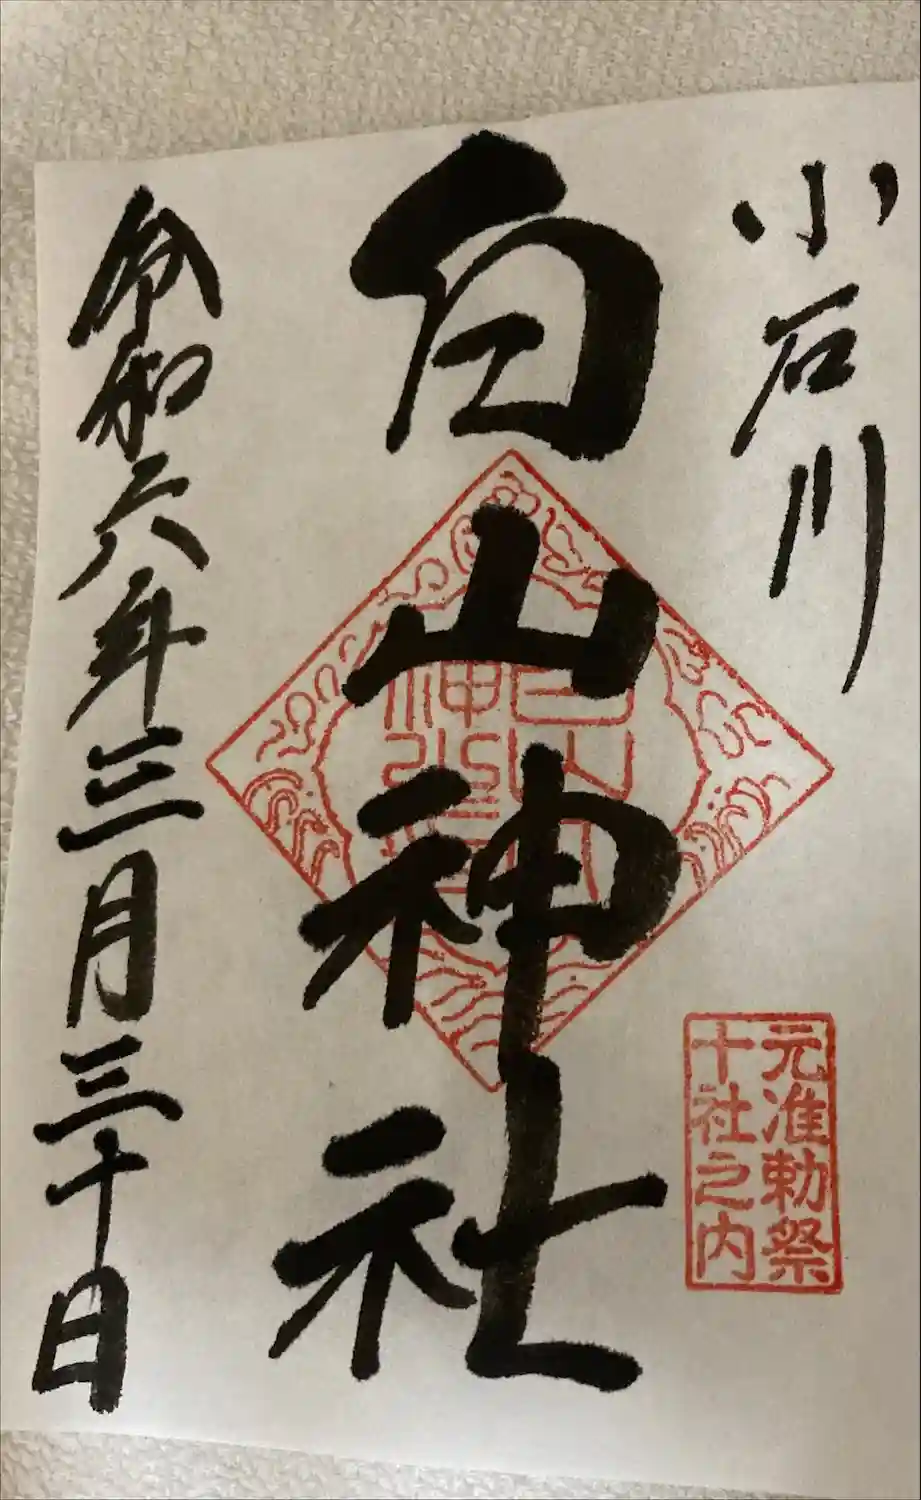 小石川
元准勅祭
十社之内
白山神社
令和六年三月三十日